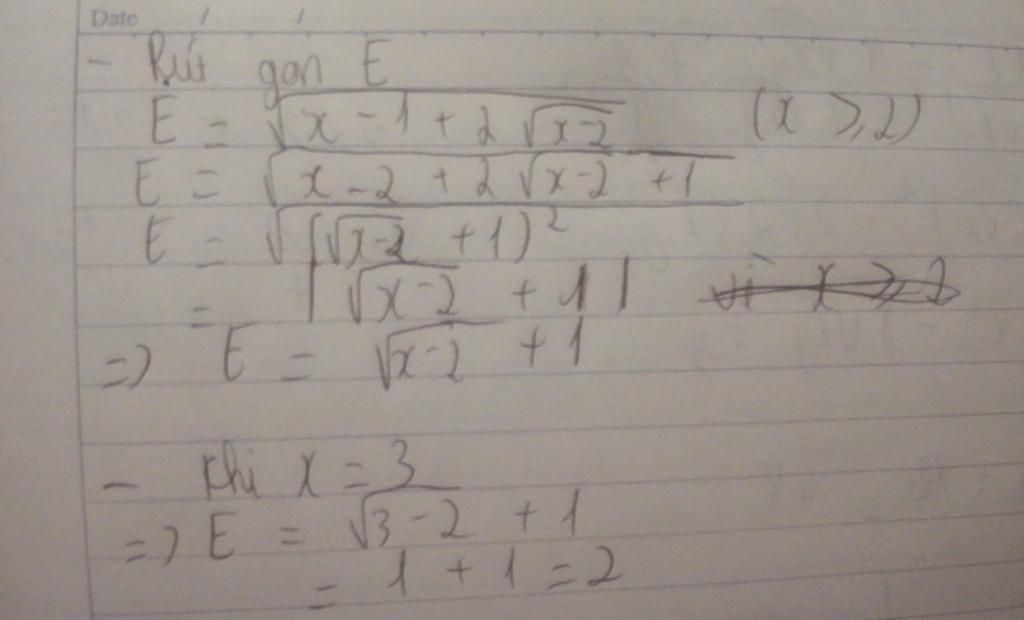 Date / /
- Rút gọn E
E = √(x - 1 + 2√(x-2)) (x ≥ 2)
E = √(x - 2 + 2√(x-2) + 1)
E = √((√(x-2) + 1)²)
= |√(x-2) + 1| vì x ≥ 2
=> E = √(x-2) + 1
- Khi x = 3
=> E = √(3 - 2) + 1
= 1 + 1 = 2